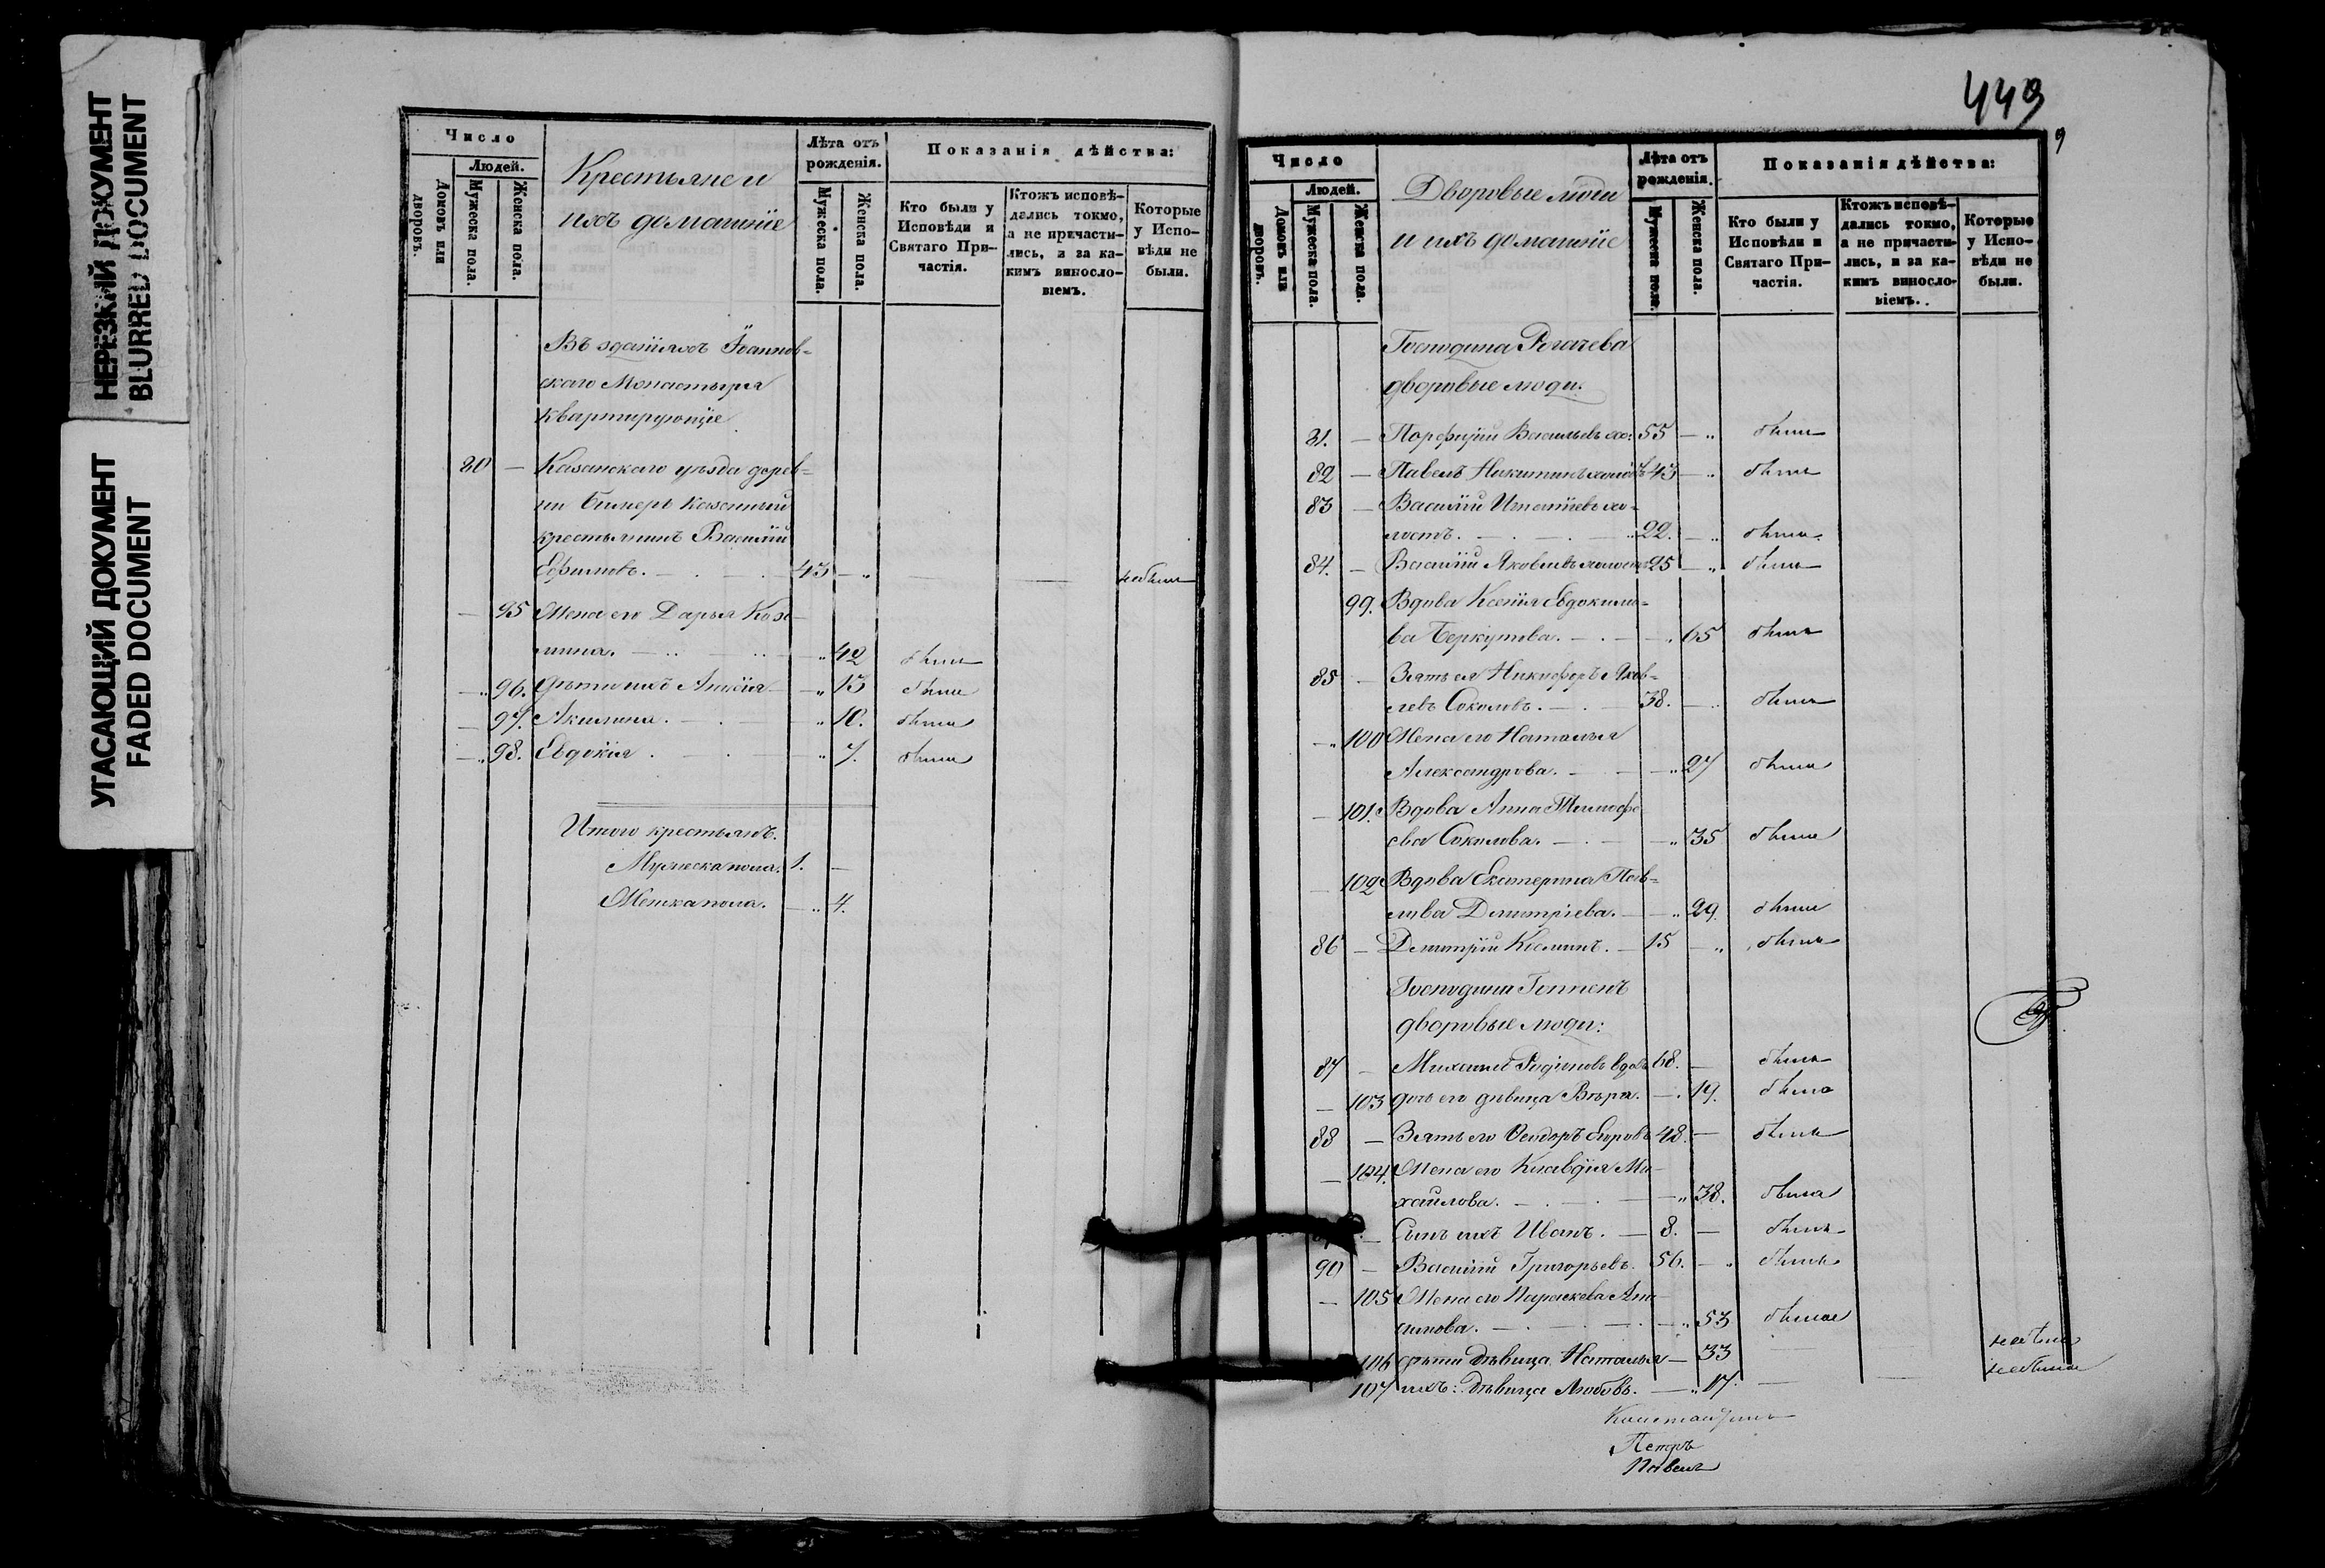 НЕРЕЗКИЙ ДОКУМЕНТ
BLURRED DOCUMENT
УГАСАЮЩИЙ ДОКУМЕНТ
FADED DOCUMENT
Число
Людей.
Домовъ или дворовъ.
Мужеска пола.
Женска пола.
Крестьяне и
ихъ домашніе
Лѣта отъ
рожденія.
Мужеска пола.
Женска пола.
Показанія дѣйства:
Кто были у
Исповѣди и
Святаго При-
частія.
Ктожъ исповѣ-
дались токмо,
а не причасти-
лись, и за ка-
кимъ виносло-
віемъ.
Которые
у Испо-
вѣди не
были.
Въ зданіяхъ Іоаннов=
скаго Монастыря
квартирующіе
80 — Казанскаго уѣзда дерев=
ни Бимерь казенный
крестьянинъ Василій
Ефимовъ. 43 — небылъ
— 95 Жена его Дарья Козь-
мина. 42 была
— 96. Дѣти ихъ Анисія 13 была
— 97. Акилина. 10. была
— 98. Евдокія 7. была
Итого крестьянъ.
Мужеска пола. 1. —
Женска пола. — 4.
449
9
Число
Людей.
Домовъ или дворовъ.
Мужеска пола.
Женска пола.
Дворовые люди
и ихъ домашніе
Лѣта отъ
рожденія.
Мужеска пола.
Женска пола.
Показанія дѣйства:
Кто были у
Исповѣди и
Святаго При-
частія.
Ктожъ исповѣ-
дались токмо,
а не причасти-
лись, и за ка-
кимъ виносло-
віемъ.
Которые
у Испо-
вѣди не
были.
Господина Рогачева
дворовые люди.
81. — Порфирій Васильевъ хо: 55 — былъ
82 — Павелъ Никитинъ 43 — былъ
83 — Василій Игнатіевъ хо=
лостъ. 22. — былъ.
84. — Василій Яковлевъ холостъ 25 — былъ
99. Вдова Ксенія Евдокимо=
ва Беркутова. 65 была
85 — Зять ея Никифоръ Яков=
левъ Соколовъ. 38. — былъ
— 100 Жена его Наталья
Александрова. 27 была
— 101. Вдова Анна Тимофе
ева Соколова. 35 была
— 102 Вдова Екатерина Пав=
лова Димитріева. 29. была
86 — Димитрій 15 — былъ
Господина Геппенъ
дворовые люди:
87 — Михаилъ Родіоновъ вдовъ 68. — былъ
— 103 дочь его дѣвица Вѣра. — 19. была
88 — Зять его Ѳеодоръ Егоровъ 48. — былъ
— 104. Жена его Клавдія Ми-
хайлова. 38. была
— Сынъ ихъ Иванъ. — 8. — былъ
90 — Василій Григорьевъ. 56. — былъ
— 105 Жена его Параскева
53 была
106 Дѣти дѣвица Наталья — 33 — небыла
107 ихъ: Дѣвица Любовь. — 17. — небыла
Константинъ
Петръ
Павелъ